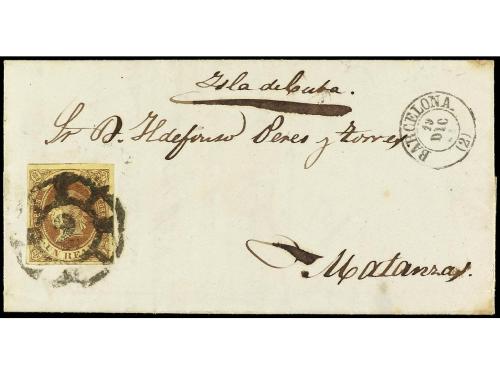 Isla de Cuba.
Sr. D. Ildefonso Peres y torres
Matanzas.
BARCELONA
19
DIC
(2)
UN RE